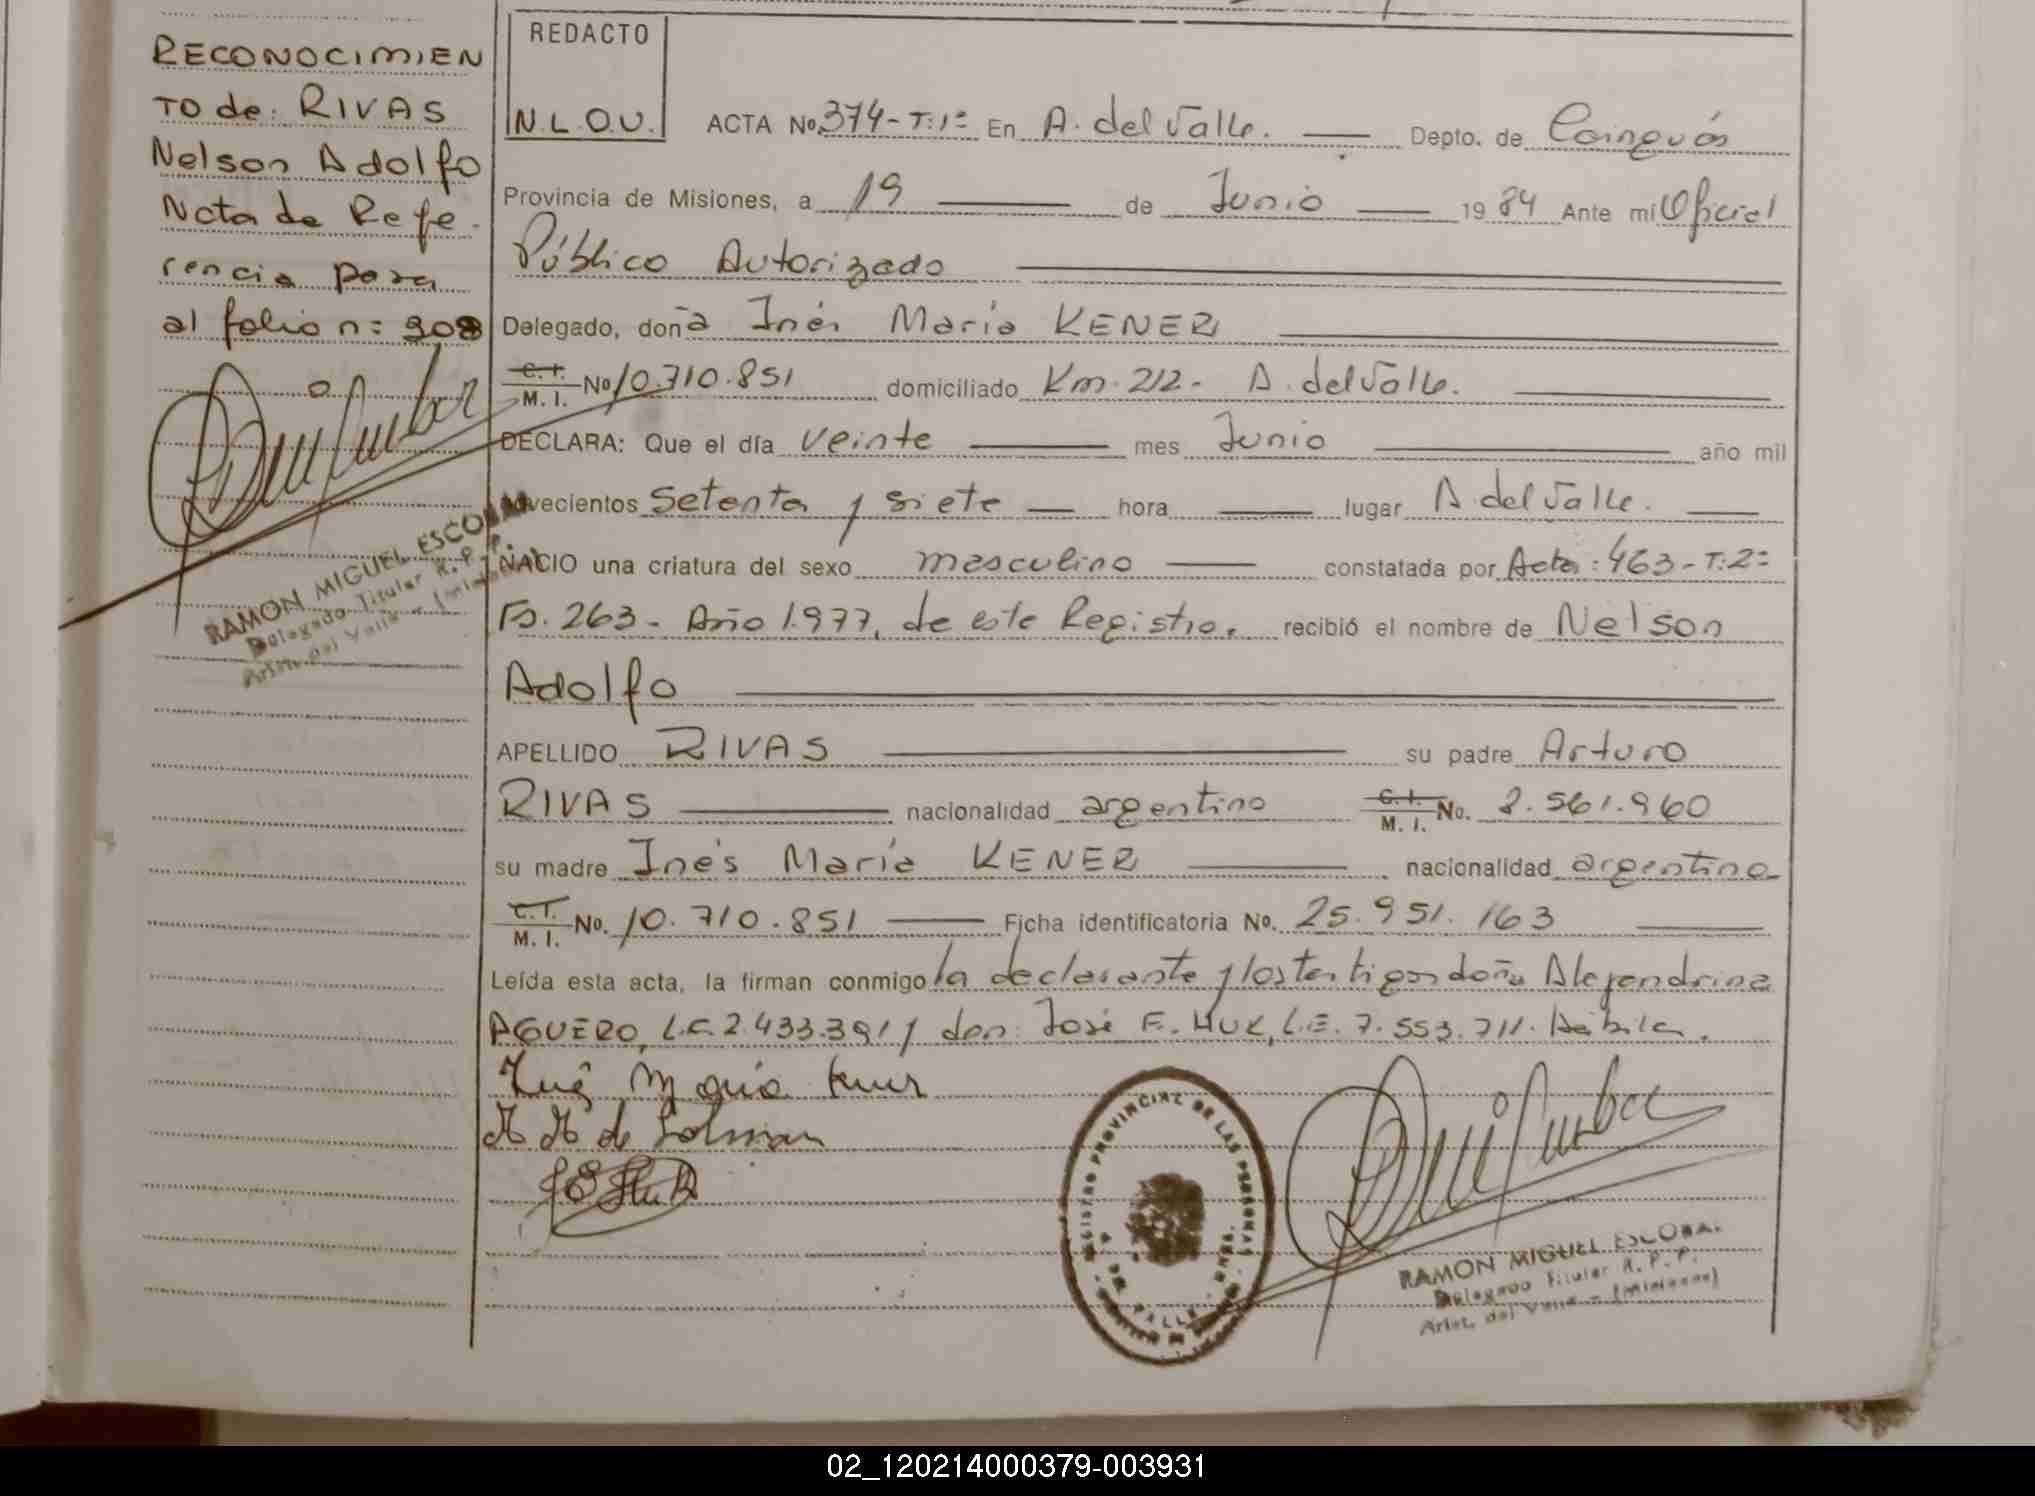 RECONOCIMIEN
TO de: RIVAS
Nelson Adolfo
Nota de Refe-
rencia pasa
al folio n: 308
RAMON MIGUEL ESCOBAR
Delegado Titular R. P. P.
Arist. del Valle - (Misiones)
REDACTO
N.L.O.U.
ACTA No 374-T:1º En A. del Valle. Depto. de Cainguás
Provincia de Misiones, a 19 de Junio 1984 Ante mí Oficial
Público Autorizado
Delegado, doña Inés María KENER
C.I. M. I. No 10.710.851 domiciliado Km. 212- A. del Valle.
DECLARA: Que el día veinte mes Junio año mil
novecientos setenta y siete hora lugar A. del Valle.
NACIO una criatura del sexo masculino constatada por Acta: 463-T:2º
Fs. 263- Año 1.977, de este Registro. recibió el nombre de Nelson
Adolfo
APELLIDO RIVAS su padre Arturo
RIVAS nacionalidad argentino C.I. M. I. No. 3.561.960
su madre Inés María KENER nacionalidad argentina
C.I. M. I. No. 10.710.851 Ficha identificatoria No. 25.951.163
Leída esta acta, la firman conmigo la declarante y los testigos doña Alejandrina
AGUERO, L.C. 2.433.391 y don: José E. HUK, L.E. 7.553.711. Hábiles.
Inés María Kener
de
REGISTRO PROVINCIAL DE LAS PERSONAS
A. DEL VALLE
RAMON MIGUEL ESCOBAR
Delegado Titular R. P. P.
Arist. del Valle - (Misiones)
02_120214000379-003931